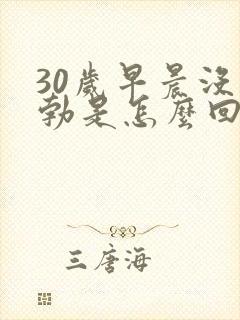 30歲早晨沒
勃是怎麼回
三唐海